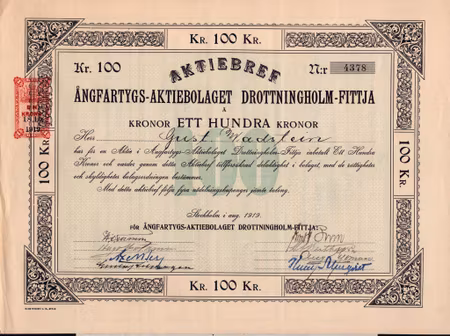 Kr. 100 Kr.
Kr. 100
AKTIEBREF
N:r 4378
ÅNGFARTYGS-AKTIEBOLAGET DROTTNINGHOLM-FITTJA
Å
KRONOR ETT HUNDRA KRONOR
Herr Gust Wadstein
har för en Aktie i Ångfartygs-Aktiebolaget Drottningholm-Fittja inbetalt Ett Hundra
Kronor och varder genom detta Aktiebref tillförsäkrad delaktighet i bolaget, med de rättigheter
och skyldigheter bolagsordningen bestämmer.
Med detta aktiebref följa fyra utdelningskuponger jämte talong.
Stockholm i aug. 1919.
FÖR ÅNGFARTYGS-AKTIEBOLAGET DROTTNINGHOLM-FITTJA:
Kr. 100 Kr.
Kr. 100 Kr.
Kr. 100 Kr.
100
1919